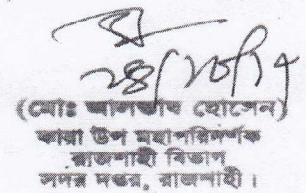 (মোঃ আলতাব হোসেন)
কারা উপ মহাপরিদর্শক
রাজশাহী বিভাগ
সদর দপ্তর, রাজশাহী।